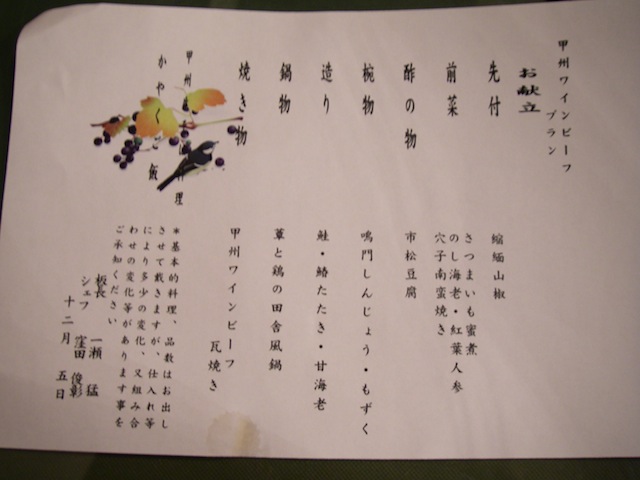 甲州ワインビーフ
プラン
お献立
先付
縮緬山椒
前菜
さつまいも蜜煮
のし海老・紅葉人参
穴子南蛮焼き
酢の物
市松豆腐
椀物
鳴門しんじょう・もずく
造り
鮭・鰆たたき・甘海老
鍋物
蕈と鶏の田舎風鍋
焼き物
甲州ワインビーフ
瓦焼き
甲州 料理
かやくご飯
*基本的料理、品数はお出し
させて戴きますが、仕入れ等
により多少の変化、又組み合
わせの変化等があります事を
ご承知ください
板長 一瀬 猛
シェフ 窪田 俊彰
十二月 五日